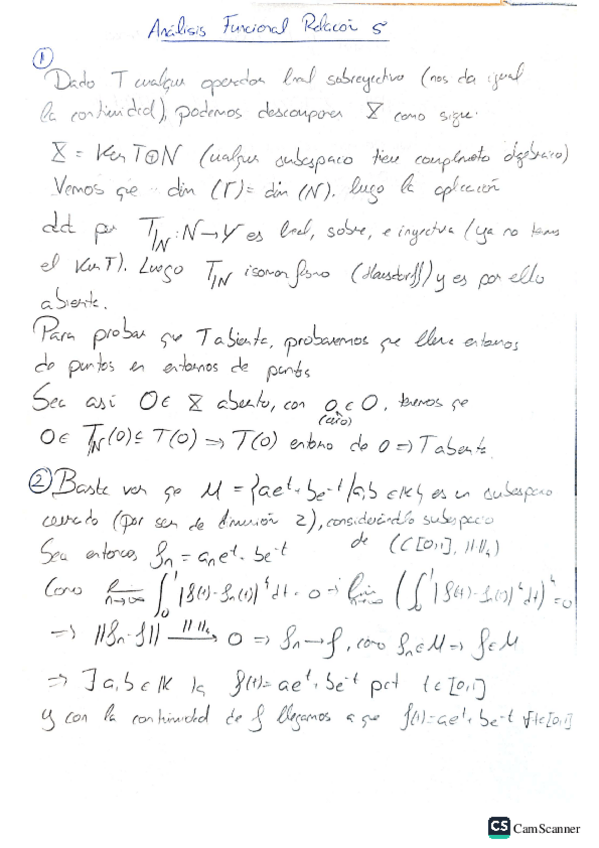 Análisis Funcional Relación 5
①
Dado T cualquier operador lineal sobreyectivo (nos da igual
la continuidad), podemos descomponer X como sigue:
X = Ker T ⊕ N (cualquier subespacio tiene complemento algebraico)
Vemos que dim (Y) = dim (N). luego la aplicación
dada por T|N : N → Y es lineal, sobre, e inyectiva (ya no tiene
el Ker T). Luego T|N isomorfismo (Hausdorff) y es por ello
abierta.
Para probar que T abierta, probaremos que lleva entornos
de puntos en entornos de puntos
Sea así O ∈ X abierto, con 0 ∈ O, tenemos que
(cero)
0 ∈ T|N(O) ⊆ T(O) ⇒ T(O) entorno de 0 ⇒ T abierta.
② Basta ver que M = {ae^t + be^-t / a, b ∈ K} es un subespacio
cerrado (por ser de dimensión 2), considerándolo subespacio
de (C[0,1], || ||₄)
Sea entonces fn = an e^t + be^-t
Como lim n→∞ ∫₀¹ |f(t) - fn(t)|⁴ dt = 0 ⇒ lim (∫₀¹ |f(t) - fn(t)|⁴ dt)^¼ = 0
⇒ ||fn - f|| —|| ||₄→ 0 ⇒ fn → f, como fn ∈ M ⇒ f ∈ M
⇒ ∃ a, b ∈ K tq f(t) = ae^t + be^-t pct t ∈ [0,1]
y con la continuidad de f llegamos a que f(t) = ae^t + be^-t ∀t ∈ [0,1]
CS CamScanner